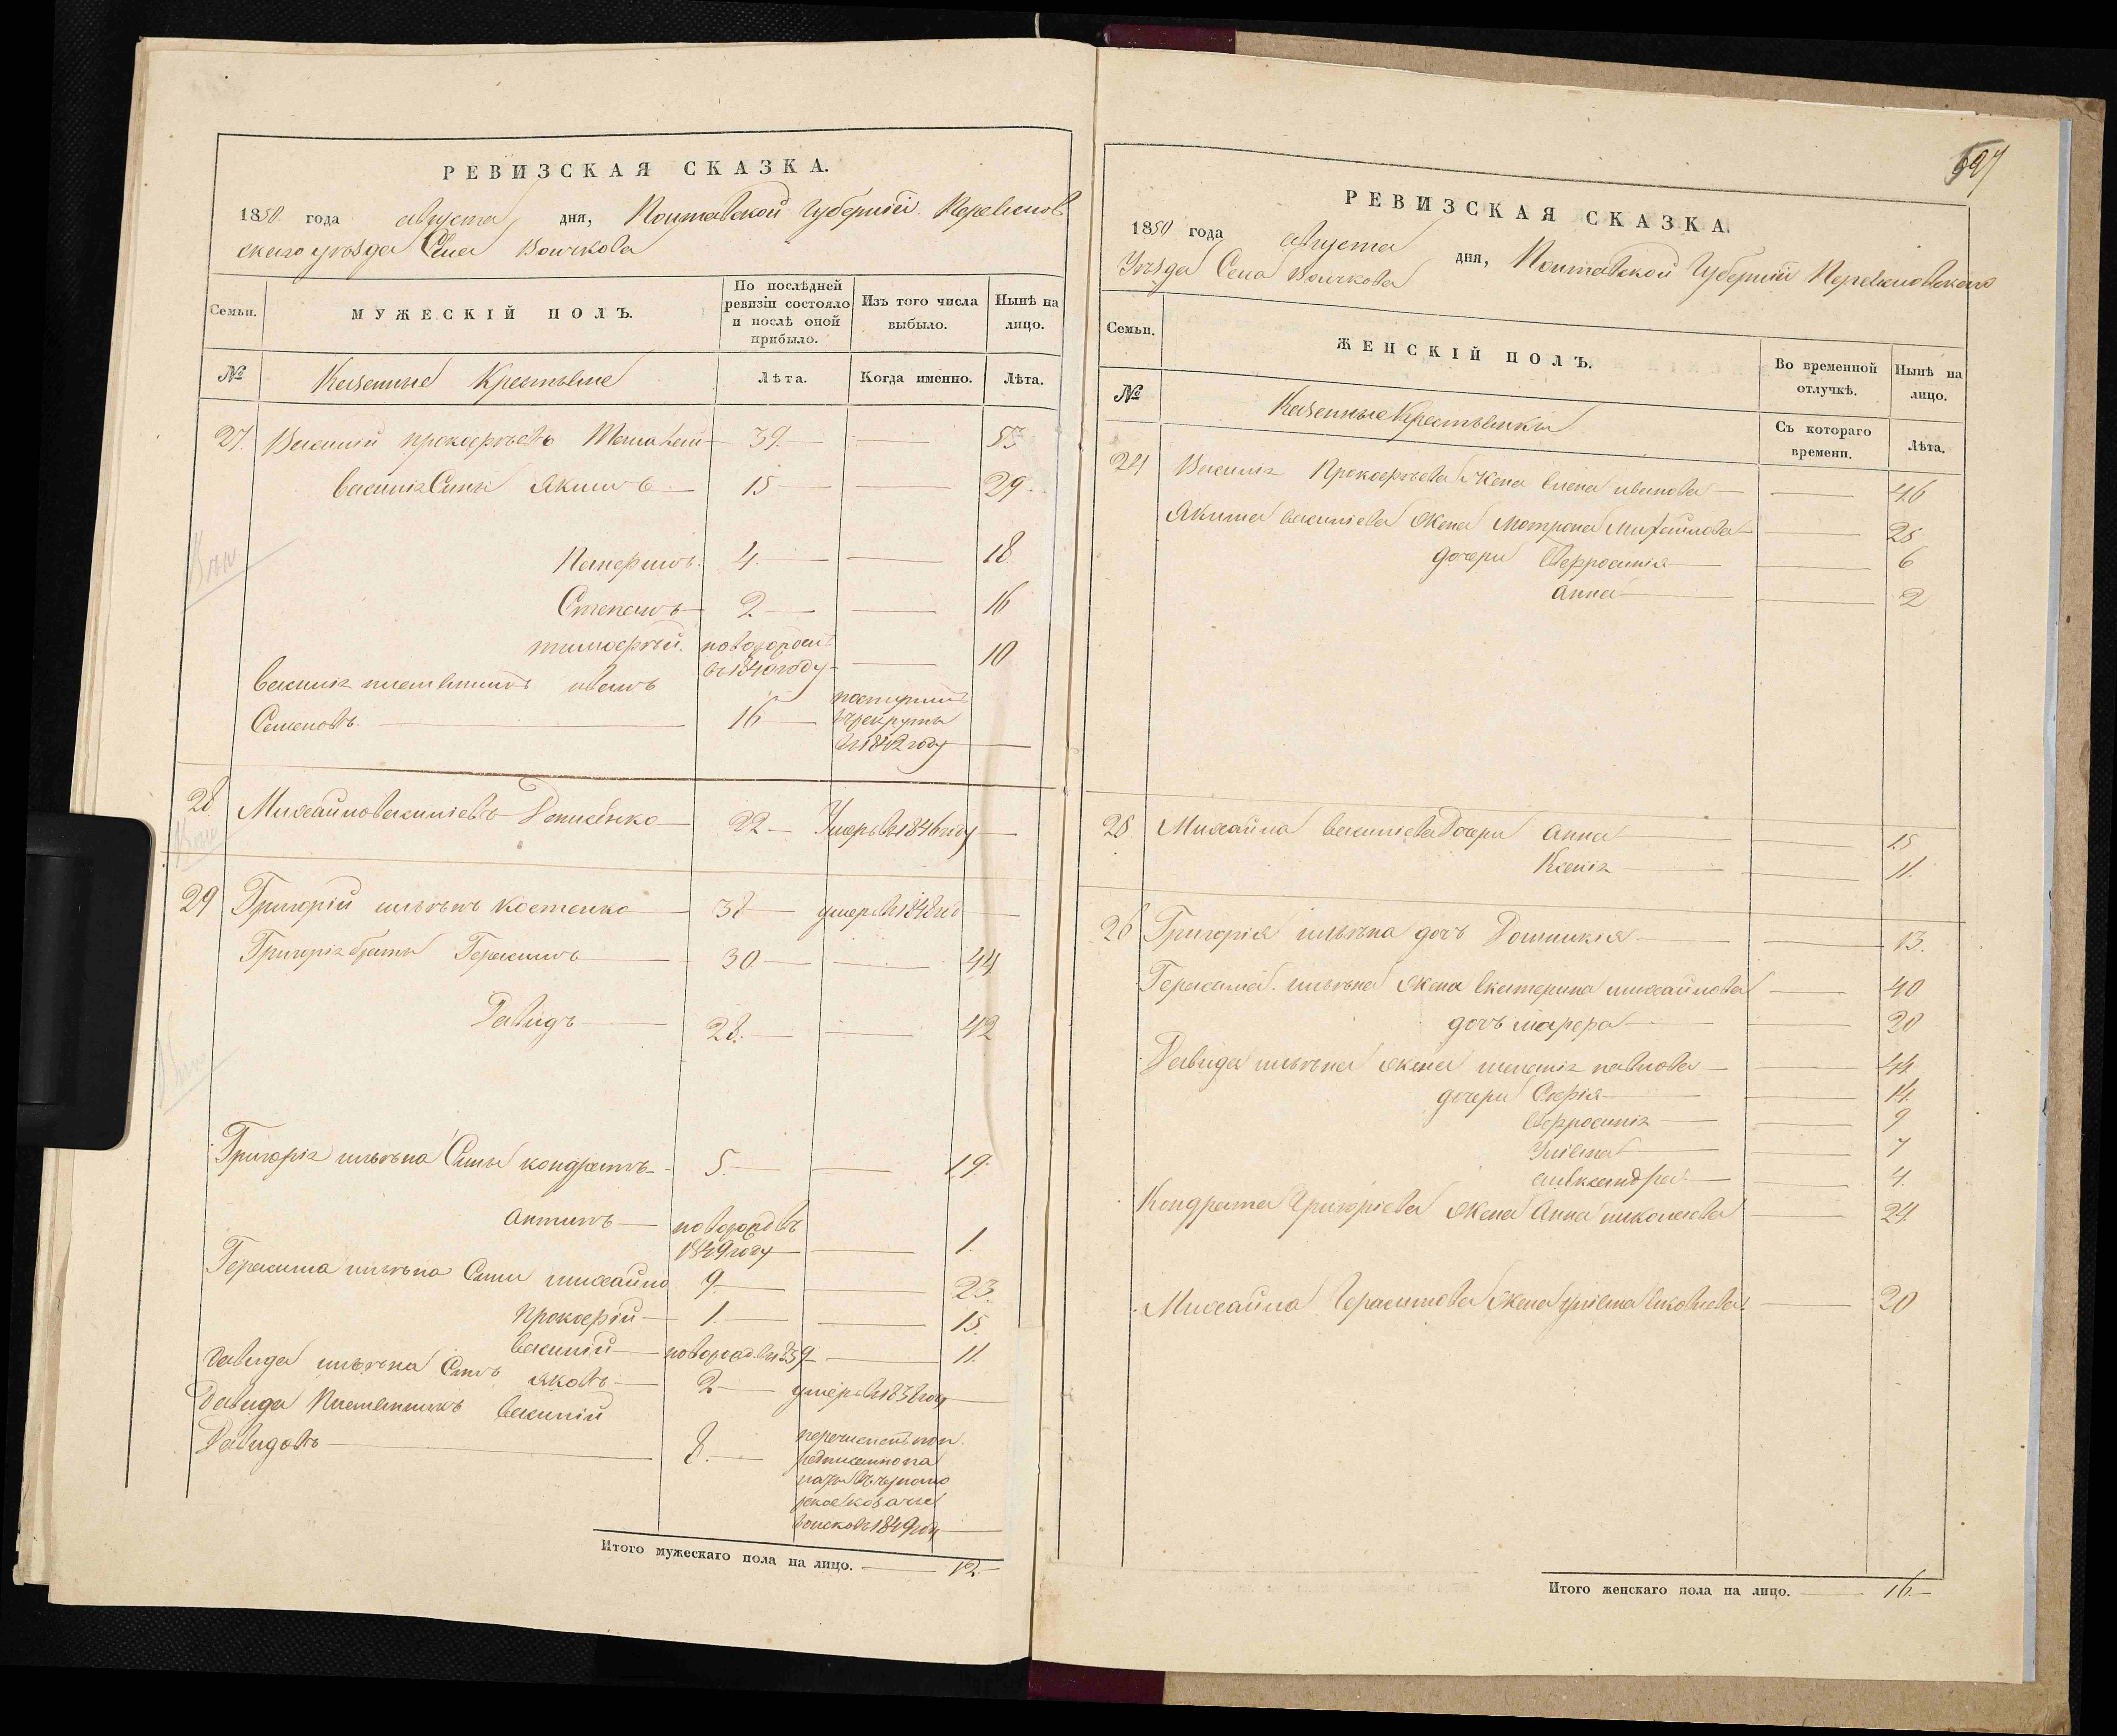 РЕВИЗСКАЯ СКАЗКА.
1850 года августа дня, Полтавской Губерніи Переяслов
скаго уѣзда Села Войчкова
Семьи.
МУЖЕСКІЙ ПОЛЪ.
По послѣдней
ревизіи состояло
и послѣ оной
прибыло.
Изъ того числа
выбыло.
Нынѣ на
лицо.
№
Казенные Крестьяне
Лѣта.
Когда именно.
Лѣта.
27. Василій прокофьевъ 39. 53
василія Сыны Якимъ 15 29.
Панфилъ. 4. 18
Степанъ 2 16
тимофѣй. новорожден
въ 1840 году 10
василія племянникъ иванъ
Семеновъ. 16 поступилъ
въ рекруты
въ 1842 году
28 Михайло василіевъ Денисенко 22 Умеръ въ 1846 году
29 Григорій ильинъ Костенко 38 умеръ въ 1848 го
Григорія братья Герасимъ 30. 44
Давидъ 28. 42
Григорія ильина Сыны кондратъ 5. 19.
Антипъ новорожд въ
1849 году 1.
Герасима ильина Сыны михайло 9 23.
Прокофій 1. 15.
василій новорожд. въ 839 11.
Давида ильина Сынъ яковъ 2 умеръ въ 1838 году
Давида Племянникъ василій
Давидовъ 8. перечисленъ
въ черномо
рское козачье
войско въ 1849 году
Итого мужескаго пола на лицо. 12
597
РЕВИЗСКАЯ СКАЗКА.
1850 года августа дня, Полтавской Губерніи Переясловскаго
Уѣзда Села Войчкова
Семьи.
ЖЕНСКІЙ ПОЛЪ.
Во временной
отлучкѣ.
Нынѣ на
лицо.
№
Казенные Крестьянки
Съ котораго
времени.
Лѣта.
24 Василія Прокофьева Жена Елена иванова 46
Якима василіева Жена Мотрона Михайлова 25
дочери Евфросинія 6
Анна 2
25 Михайла василіева Дочери Анна 15
Ксенія 11.
26 Григорія ильина дочь Домникія 13.
Герасима ильина Жена Екатерина михайлова 40
дочь марфа 20
Давида ильина жена меланія павлова 44
дочери Софія 14.
Евфросинія 9
Уліяна 7
александра 4.
Кондрата Григоріева Жена Анна николаева 24
Михайла Герасимова Жена уліяна яковлева 20
Итого женскаго пола на лицо. 16